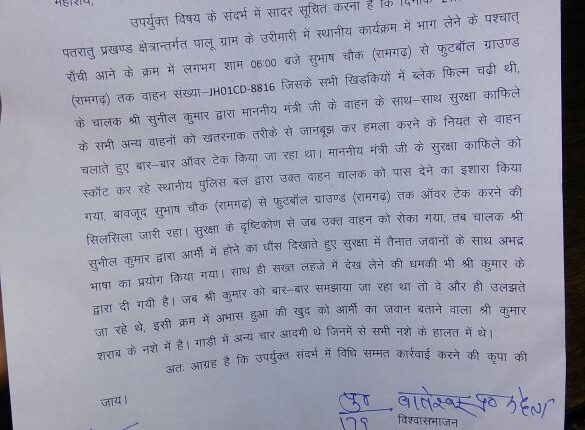 महाशय,
उपर्युक्त विषय के संदर्भ में सादर सूचित करना है कि दिनांक
पतरातु प्रखण्ड क्षेत्रान्तर्गत पालू ग्राम के उरीमारी में स्थानीय कार्यक्रम में भाग लेने के पश्चात्
राँची आने के क्रम में लगभग शाम 06:00 बजे सुभाष चौक (रामगढ़) से फुटबॉल ग्राउण्ड
(रामगढ़) तक वाहन संख्या–JH01CD-8816 जिसके सभी खिड़कियों में ब्लेक फिल्म चढ़ी थी,
के चालक श्री सुनील कुमार द्वारा माननीय मंत्री जी के वाहन के साथ–साथ सुरक्षा काफिले
के सभी अन्य वाहनों को खतरनाक तरीके से जानबूझ कर हमला करने के नियत से वाहन
चलाते हुए बार–बार ऑवर टेक किया जा रहा था। माननीय मंत्री जी के सुरक्षा काफिले को
स्कॉट कर रहे स्थानीय पुलिस बल द्वारा उक्त वाहन चालक को पास देने का इशारा किया
गया, बावजूद सुभाष चौक (रामगढ़) से फुटबॉल ग्राउण्ड (रामगढ़) तक ऑवर टेक करने की
सिलसिला जारी रहा। सुरक्षा के दृष्टिकोण से जब उक्त वाहन को रोका गया, तब चालक श्री
सुनील कुमार द्वारा आर्मी में होने का धौंस दिखाते हुए सुरक्षा में तैनात जवानों के साथ अभद्र
भाषा का प्रयोग किया गया। साथ ही सख्त लहजे में देख लेने की धमकी भी श्री कुमार के
द्वारा दी गयी है। जब श्री कुमार को बार–बार समझाया जा रहा था तो वे और ही उलझते
जा रहे थे, इसी क्रम में अभास हुआ की खुद को आर्मी का जवान बताने वाला श्री कुमार
शराब के नशे में है। गाड़ी में अन्य चार आदमी थे जिनमें से सभी नशे के हालत में थे।
अतः आग्रह है कि उपर्युक्त संदर्भ में विधि सम्मत कार्रवाई करने की कृपा की
जाय।
विश्वासभाजन